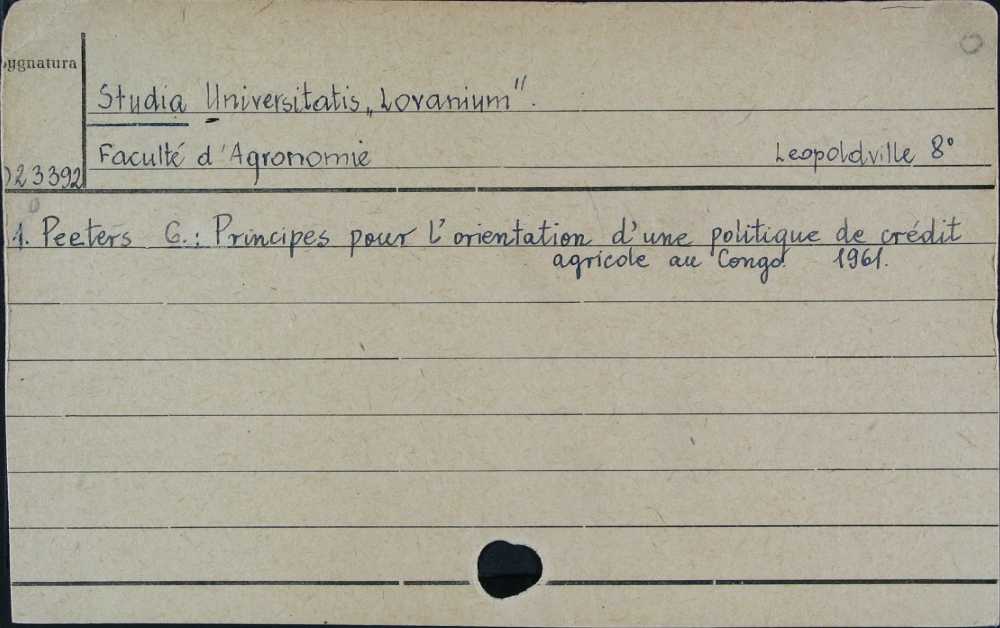 Sygnatura
Studia Universitatis „Lovanium".
Faculté d'Agronomie Leopoldville 8°
023392
1. Peeters G.: Principes pour l'orientation d'une politique de crédit
agricole au Congo. 1961.